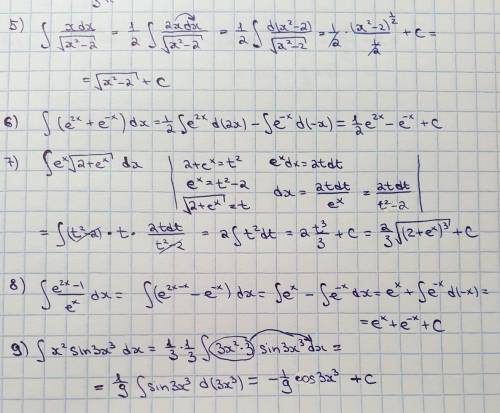 5) ∫ xdx/√(x²-2) = 1/2 ∫ 2xdx/√(x²-2) = 1/2 ∫ d(x²-2)/√(x²-2) = 1/2 · (x²-2)^(1/2)/(1/2) + C =
= √(x²-2) + C
6) ∫ (e^(2x) + e^(-x)) dx = 1/2 ∫ e^(2x) d(2x) - ∫ e^(-x) d(-x) = 1/2 e^(2x) - e^(-x) + C
7) ∫ e^x √(2+e^x) dx | 2+e^x = t² e^x dx = 2tdt |
e^x = t²-2 dx = 2tdt/e^x = 2tdt/(t²-2)
√(2+e^x) = t
= ∫ (t²-2) · t · 2tdt/(t²-2) = 2 ∫ t² dt = 2 t³/3 + C = 2/3 √((2+e^x)³) + C
8) ∫ (e^(2x)-1)/e^x dx = ∫ (e^(2x-x) - e^(-x)) dx = ∫ e^x - ∫ e^(-x) dx = e^x + ∫ e^(-x) d(-x) =
= e^x + e^(-x) + C
9) ∫ x² sin3x³ dx = 1/3 · 1/3 ∫ 3x²·3 sin3x³ dx =
= 1/9 ∫ sin3x³ d(3x³) = -1/9 cos3x³ + C